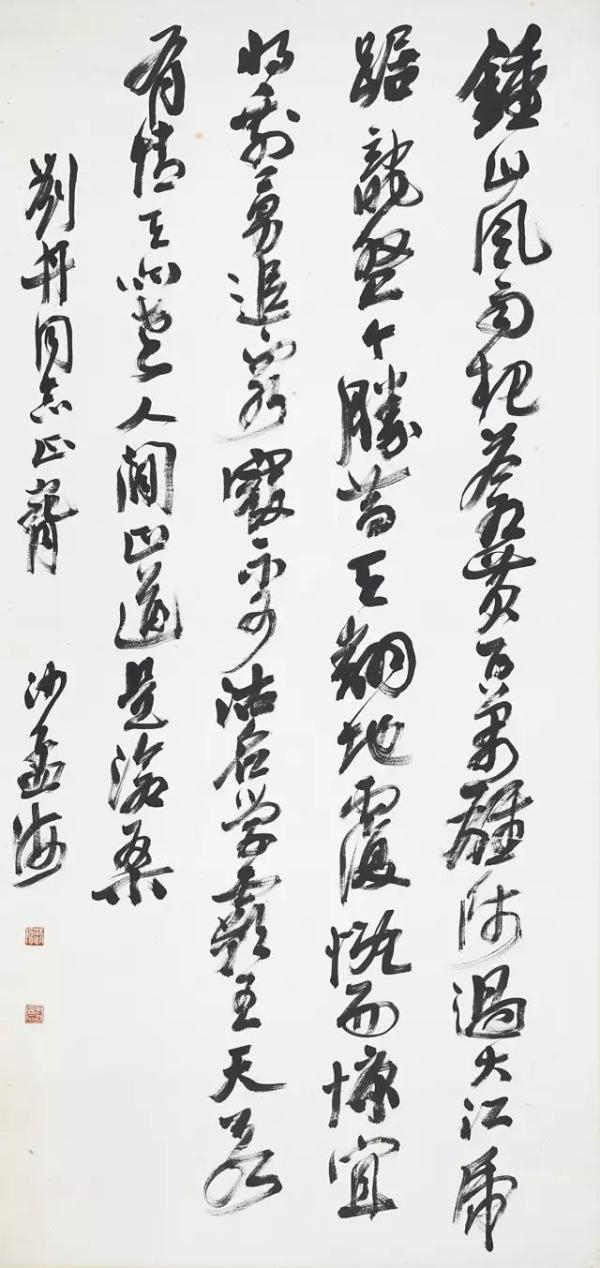 鍾山風雨起蒼黃百萬雄師過大江虎
踞龍盤今勝昔天翻地覆慨而慷宜
将剩勇追窮寇不可沽名学霸王天若
有情天亦老人間正道是滄桑
劉丹同志正 沙孟海